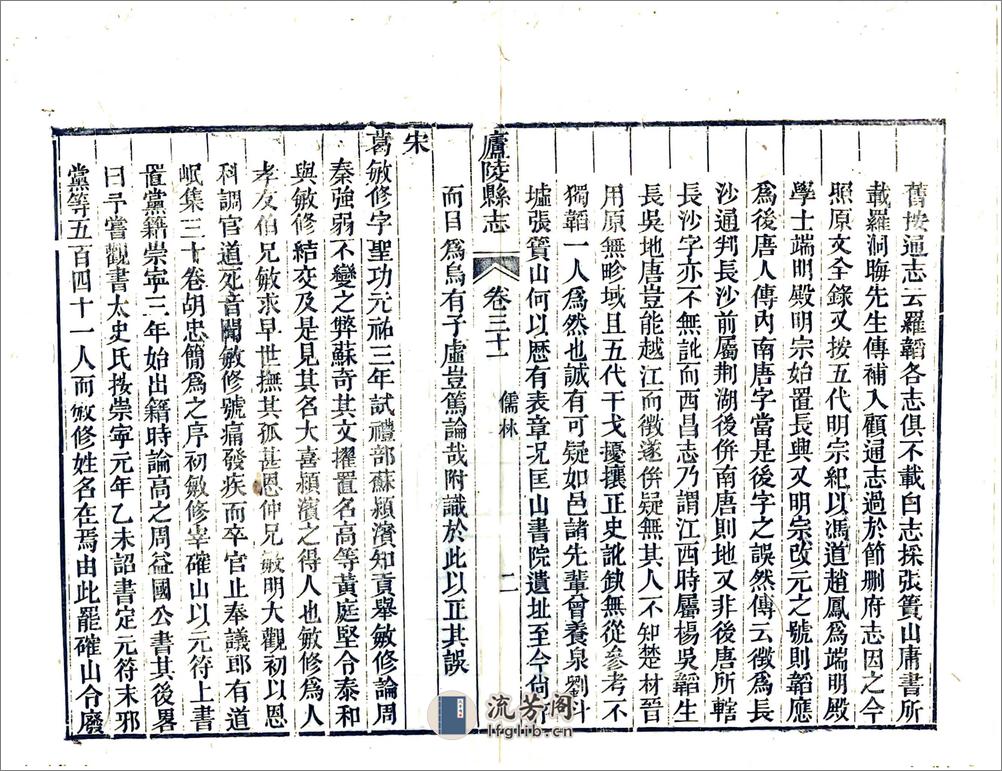 舊按通志云羅韜各志俱不載白志採張簣山庸書所
載羅洞晦先生傳補入顧通志過於節刪府志因之今
照原文全錄又按五代明宗紀以馮道趙鳳爲端明殿
學士端明殿明宗始置長興又明宗改元之號則韜應
爲後唐人傳內南唐字當是後字之誤然傳云徵爲長
沙通判長沙前屬荆湖後併南唐則地又非後唐所轄
長沙字亦不無訛而西昌志乃謂江西時屬楊吳韜生
長吳地唐豈能越江而徵遂併疑無其人不知楚材晉
用原無畛域且五代干戈擾攘正史訛缺無從參考不
獨韜一人爲然也誠有可疑如邑諸先輩曾養泉劉斗
墟張簣山何以歷有表章况匡山書院遺址至今尙
廬陵縣志
卷三十一
儒林
二
而目爲烏有子虛豈篤論哉附識於此以正其誤
宋
葛敏修字聖功元祐三年試禮部蘇潁濱知貢舉敏修論周
秦強弱不變之弊蘇奇其文擢置名高等黃庭堅令泰和
與敏修結交及是見其名大喜潁濱之得人也敏修爲人
孝友伯兄敏求早世撫其孤甚恩仲兄敏明大觀初以恩
科調官道死音聞敏修號痛發疾而卒官止奉議郎有道
岷集三十卷胡忠簡爲之序初敏修宰確山以元符上書
置黨籍崇寧三年始出籍時論高之周益國公書其後畧
曰予嘗觀書太史氏按崇寧元年乙未詔書定元符末邪
黨等五百四十一人而敏修姓名在焉由此罷確山令廢
流芳阁
lfglib.cn